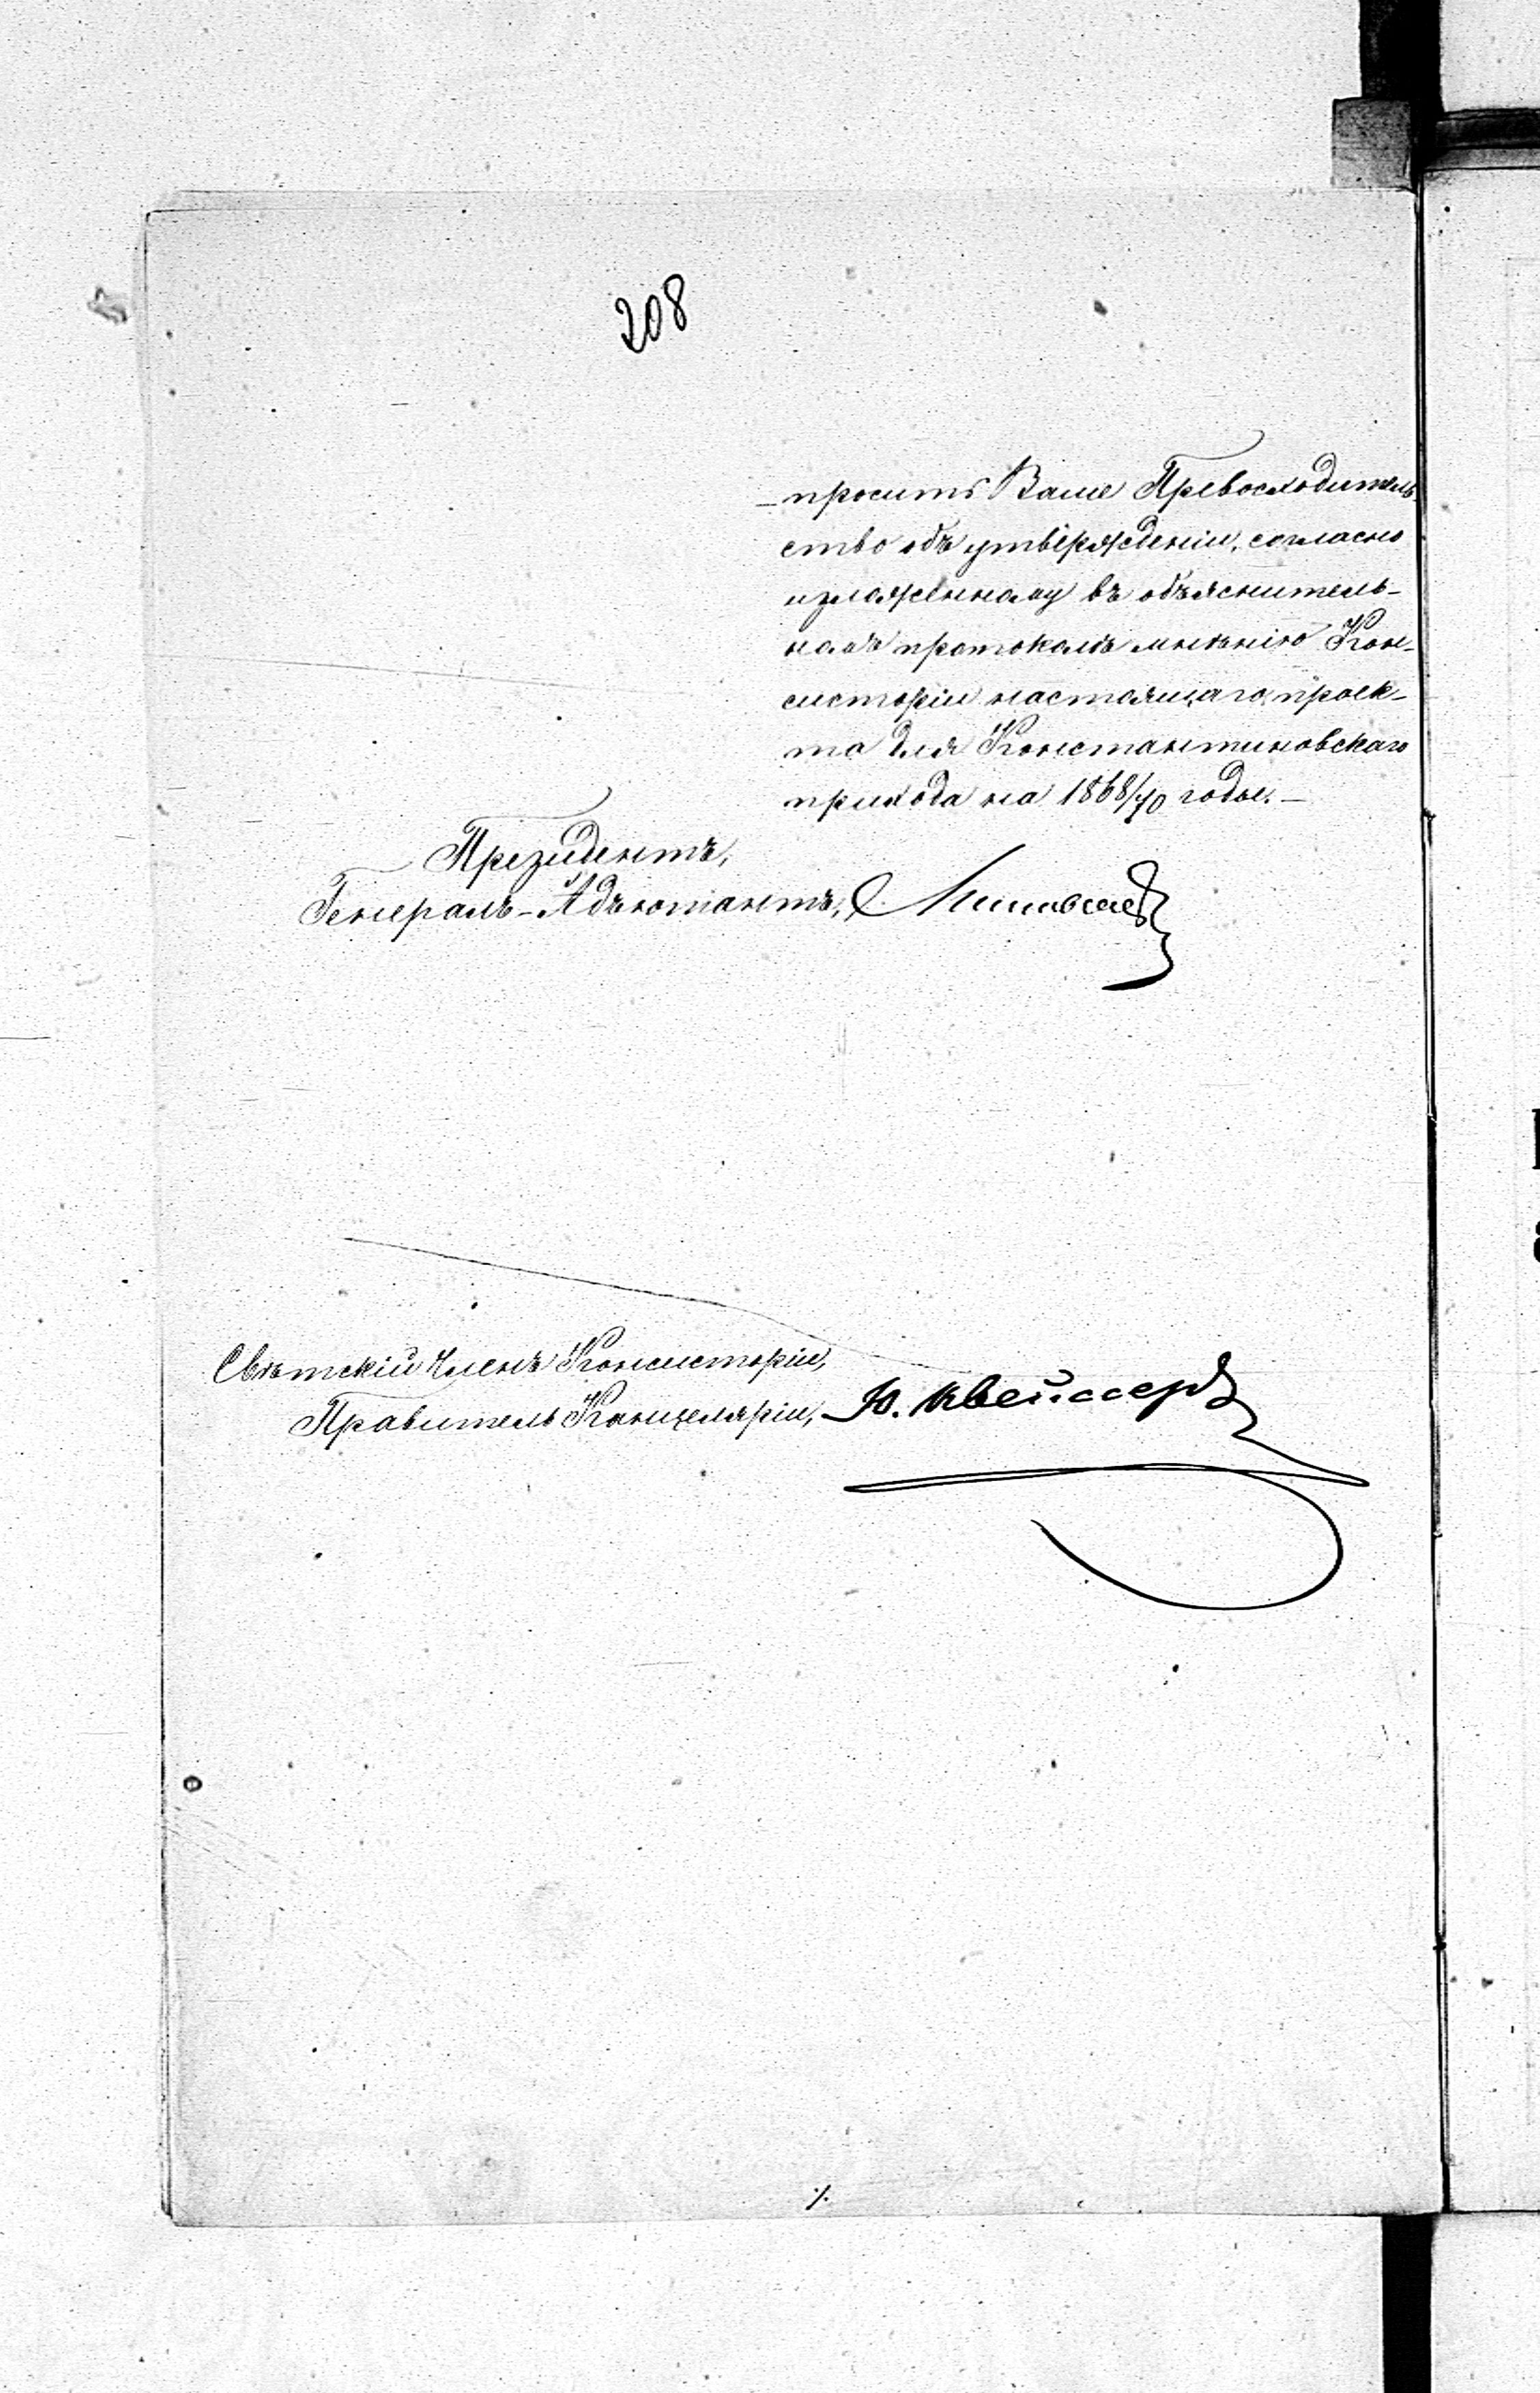 208
просить Ваше Превосходитель-
ство объ утвержденіи, согласно
изложенному въ объяснитель-
номъ протоколѣ мнѣнію Кон-
систоріи настоящаго проек-
та для Константиновскаго
прихода на 1868/70 годы.—
Президентъ,
Генералъ-Адъютантъ,
Свѣтскій Членъ Консисторіи,
Правитель Канцеляріи, Ю. Квейссеръ